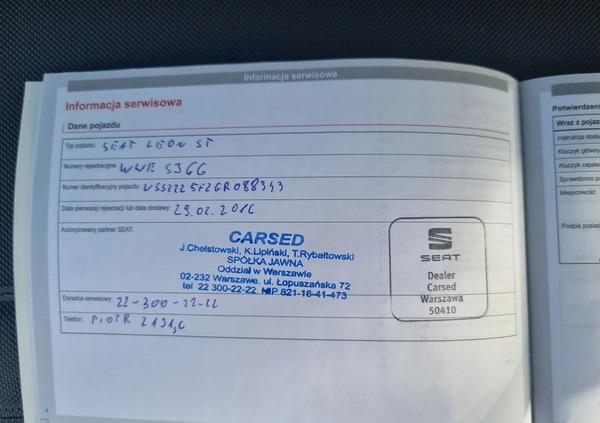 Informacja serwisowa
Informacja serwisowa
Dane pojazdu
Typ pojazdu: SEAT LEON ST
Numery rejestracyjne: WWE SJ66
Numer identyfikacyjny pojazdu: VSSZZZ5FZGR088343
Data pierwszej rejestracji lub data dostawy: 29.02.2016
Autoryzowany partner SEAT:
CARSED
J.Chełstowski, K.Lipiński, T.Rybałtowski
SPÓŁKA JAWNA
Oddział w Warszawie
02-232 Warszawa, ul. Łopuszańska 72
tel 22 300-22-22, NIP 821-16-41-473
SEAT
Dealer
Carsed
Warszawa
50410
Doradca serwisowy: 22-300-22-22
Telefon: PIOTR
4
Potwierdzeni
Wraz z pojaz
Instrukcja obsłu
Kluczyk główny
Kluczyk zapaso
Sprawdzono p
Miejscowość
Podpis posiad